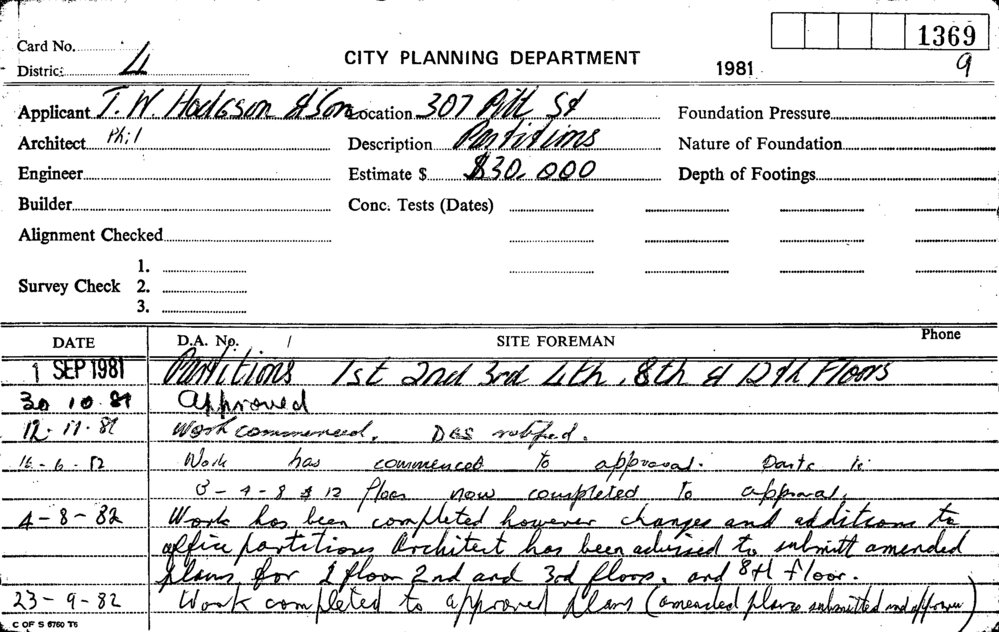 1369
Card No.
CITY PLANNING DEPARTMENT
1981
9
District 4
Applicant T. W. Hodgson & Son Location 307 Pitt St Foundation Pressure
Architect Phil Description Partitions Nature of Foundation
Engineer Estimate $ $30,000 Depth of Footings
Builder Conc. Tests (Dates)
Alignment Checked
1.
Survey Check 2.
3.
DATE D.A. No. / SITE FOREMAN Phone
1 SEP 1981 Partitions 1st 2nd 3rd 4th, 8th & 12th Floors
30 10 81 Approved
12 · 11 · 81 Work commenced. notified.
16 - 6 - 82 Work has commenced to approval.
3 - 4 - 8 & 12 floor now completed to approval.
4 - 8 - 82 Work has been completed however changes and additions to
office partitions Architect has been advised to submitt amended
plans for 1 floor 2nd and 3rd floors, and 8th floor.
23 - 9 - 82 Work completed to approved plans (amended plans submitted and approved)
C OF S 6760 T6